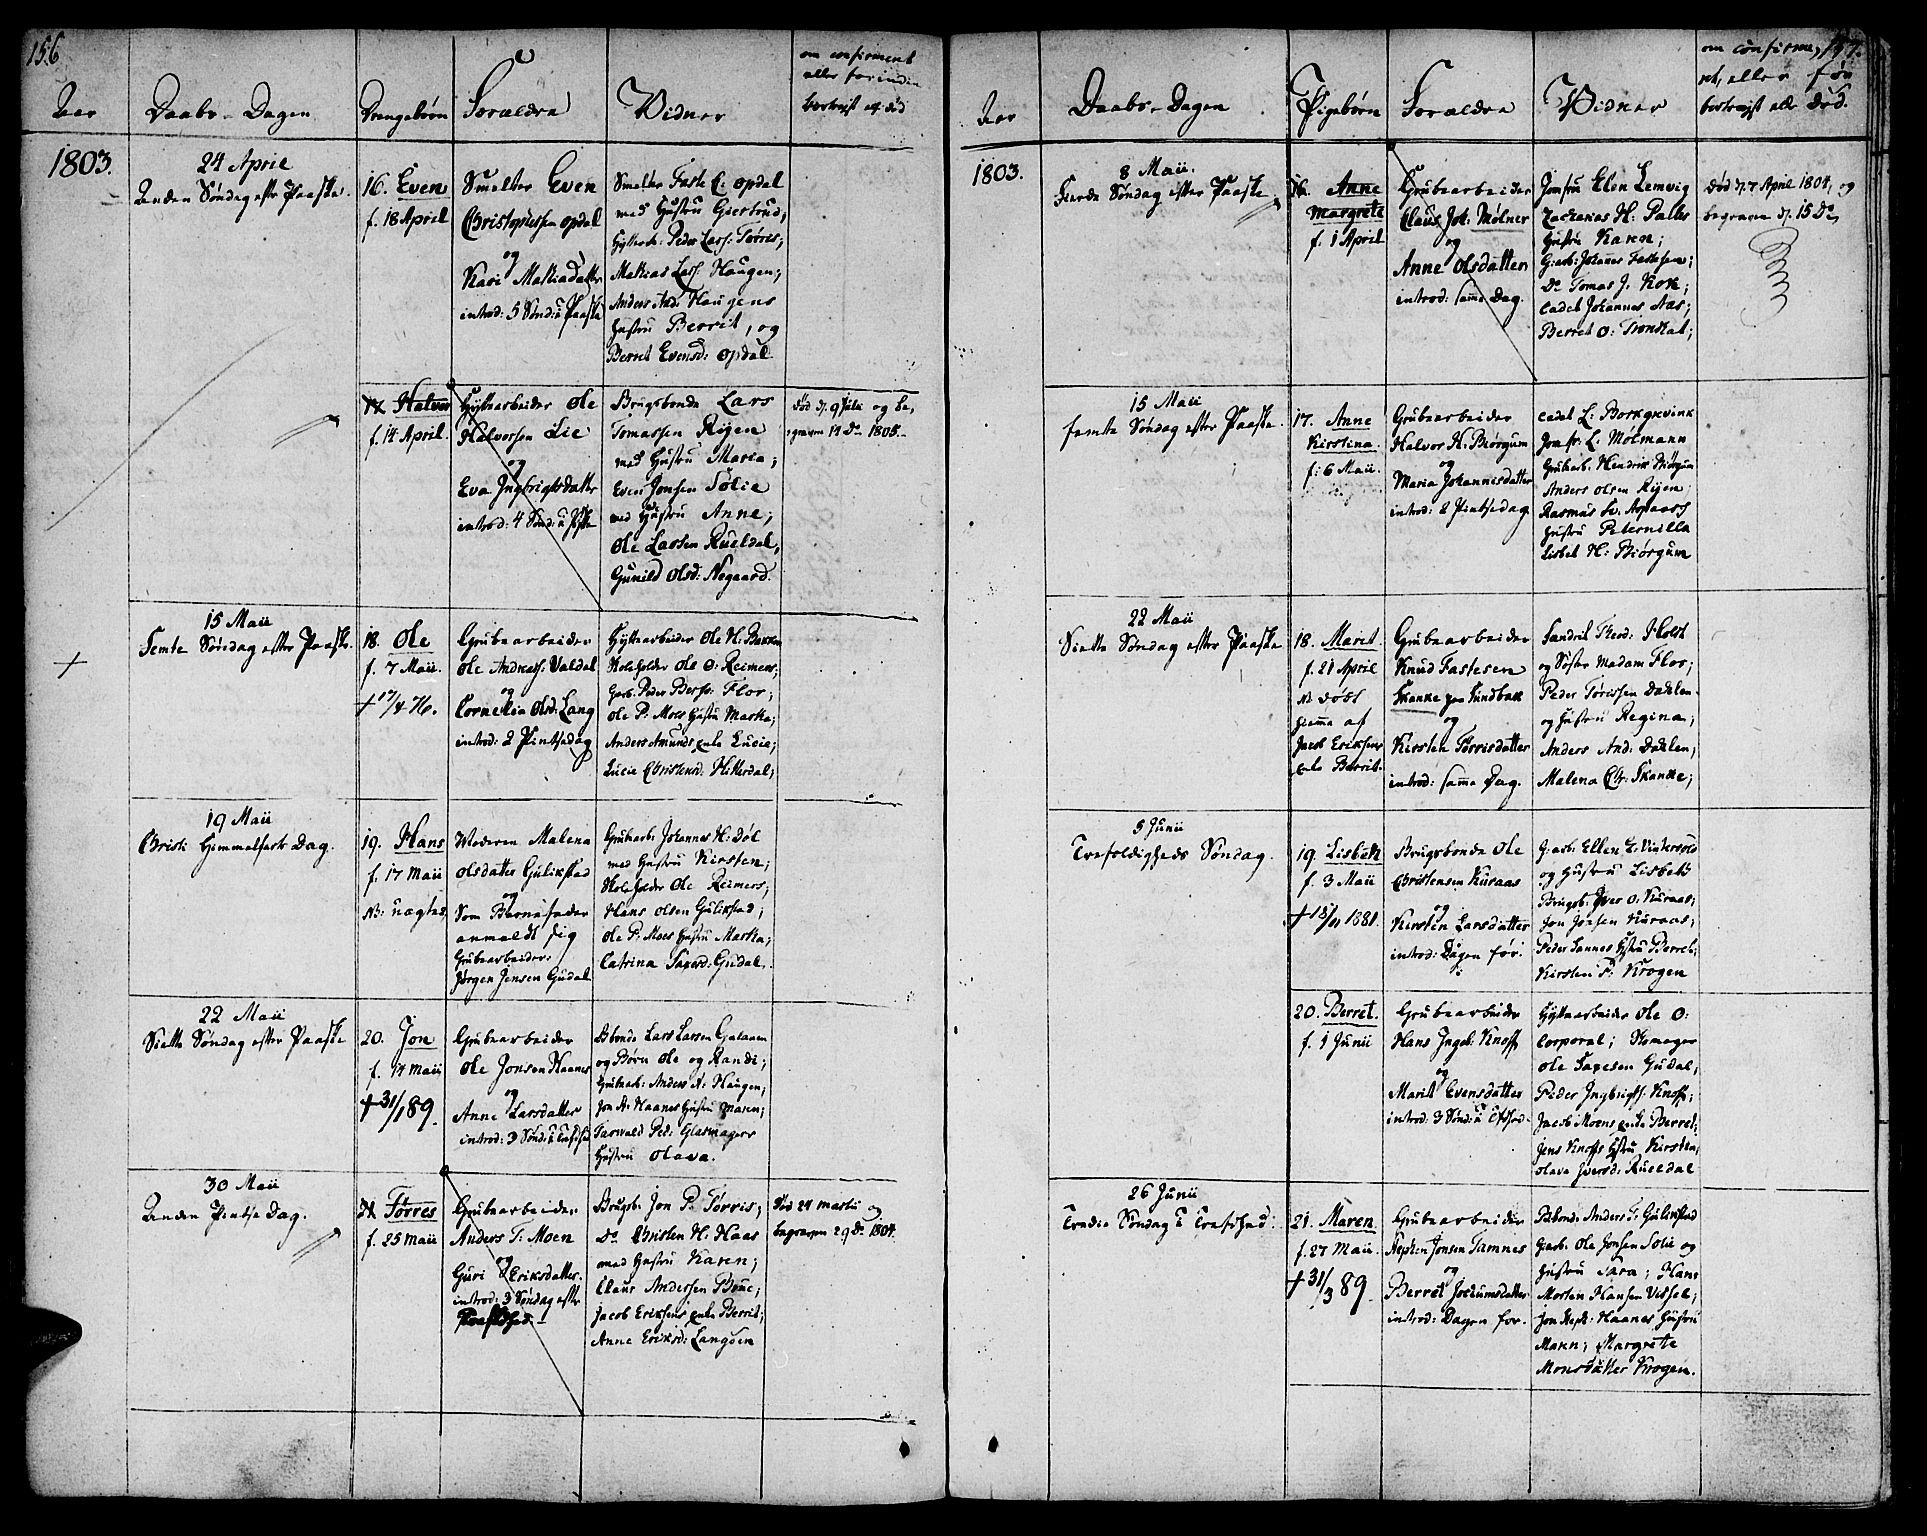 156
Aar
Daabs-Dagen
Drengebørn
Forældre
Vidner
om confirmert
eller forinden
bortreist el: død
1803.
24 April
Anden Søndag efter Paaske.
16. Even
f. 18 April
Smelter Even
Christophersen Opdal
og
Kari Mathiadatter
introd: 5 Sønd: a Paaske
Smelter Faste C: Opdal
med Hustru Giertrud;
Hyttearb: Peder Lars: Tørres;
Mathias Lars: Haugen;
Anders And: Haugens
Hustru Berrit, og
Berret Evensd: Opdal
17. Halvor
f. 14 April.
Hyttearbeider Ole
Halvorsen Lie
og
Eva Ingbrigtsdatter
introd: 4 Sønd: a Paaske
Brugsbonde Lars
Tomassen Rÿen
med Hustru Maria;
Even Jonsen Sølie
med Hustru Anne;
Ole Larsen Rueldal,
Gunild Olsd: Negaard.
død d. 9 Julii og be-
graven 14 Do 1805.
15 Maii
Femte Søndag efter Paaske.
18. Ole
f. 7 Maii.
+ 17/4 76.
Grubearbeider
Ole Andreas: Valdal
og
Cornelia Olsd: Lang
introd: 2 Pintsedag
Hyttearbeider Ole H: Bakken
Skoleholder Ole O: Reimers;
Garb: Peder Bersv: Flor;
Ole P: Moes Hustru Marka;
Anders Amunds enke Lucie;
Lucie Christensd: Hitterdal;
19 Maii
Christi Himmelfarts Dag.
19. Hans
f. 17 Maii
NB: uægte.
Moderen Malena
Olsdatter Gulikstad
og
Som Barnefader
anmeldt sig
Grubearbeider
Jørgen Jensen Gudal
Grubearb: Johannes H: Døl
med Hustru Kirsten;
Skoleholder Ole Reimers;
Hans Olsen Gulikstad;
Ole P: Moes Hustru Marka;
Catrina Taxerd: Gudal.
22 Maii
Siette Søndag efter Paaske
20. Jon
f. 14 Maii
+ 31/1 89.
Grubearbeider
Ole Jonsen Haanes
og
Anne Larsdatter
introd: 3 Sønd: a Trefoldhed
Bbonde Lars Larsen Galaaen
og Børn Ole og Randi;
Grubearb: Anders A: Haugen;
Jon A: Haanes Hustru Maren;
Tarvald Ped: Glasmagers
Hustru Olava.
30 Maii
Anden Pintse Dag.
21. Tørres
f. 25 Maii
Grubearbeider
Anders T: Moen
og
Guri Eriksdatter.
introd: 3 Søndag efter
Trefoldhed.
Brugsb: Jon P: Tørris;
Do Christen H: Haas
med Hustru Karen;
Claus Andersen Broue;
Jacob Eriksens enke Berrit;
Anne Eriksd: Langøen
død 24 Martii og
begraven 29 Do 1804.
157.
Aar
Daabs-Dagen
Pigebørn
Forældre
Vidner
om confirme-
ret, eller før
bortreist eller død.
1803.
8 Maii.
Fierde Søndag efter Paaske
16. Anne
Margrete
f. 1 April
Grubearbeider
Claus Joh: Mølner
og
Anne Olsdatter
introd: samme Dag.
Jomfru Elen Lemvig
Zacharias H: Pauls
Hustru Karen;
Giarb: Johannes Fastesen;
Do Tomas J. Kok;
Cadet Johannes Aas;
Berret O: Trondal;
død d. 7 April 1804, og
begraven d. 15 Do
15 Maii
Femte Søndag efter Paaske.
17. Anne
Kirstina.
f: 6 Maii.
Grubearbeider
Halvor H. Biørgum
og
Maria Johannisdatter
introd: 2 Pintsedag
Cadet L: Borkgrevink
Jomfr: L. Mølmann
Grubarb: Hendrik Biørgum
Anders Olsen Rÿen
Rasmus Hustru Peternilla
Lisbet H: Biørgum
22 Maii
Siette Søndag efter Paaske
18. Marit
f. 21 April
NB døbt
hiemme af
Jacob Eriksens
enke Berrit.
Grubearbeider
Knud Fastesen
Skanke paa Sundbak
og
Kirsten Tørrisdatter
introd: samme Dag.
Sandril Therd: Holst
og Søster Madam Flor;
Peder Tørissen Dahlen
og Hustru Regina;
Anders And: Dahlen;
Malena Chr: Skanke;
5 Junii
Trefoldigheds Søndag.
19. Lisbeth
f. 3 Maii
+ 18/11 1881.
Brugsbonde Ole
Christensen Kuraas
og
Kirsten Larsdatter
introd: Dagen før.
Garb: Ellen E: Vintervold
og Hustru Lisbeth
Brugsb: Iver O: Kuraas;
Jon Jonsen Kuraas;
Peder Sannes Hustru Berret;
Kirsten P: Krogen
20. Berret.
f. 1 Junii
Grubearbeider
Hans Ingeb: Knoff
og
Marit Evensdatter
introd: 3 Sønd: a Trefhed.
Hyttearbeider Ole O:
Corporal; Skomager
Ole Taxesen Gudal,
Peder Ingbrigts: Knoff;
Jacob Moens enke Berret;
Jens Knoffs Hustru Kirsten,
Olava Iversd: Rueldal
26 Junii
Tredie Søndag E Trefoldhed:
21. Maren
f. 27 Maii.
+ 31/3 89.
Grubearbeider
Stephen Jonsen Tamnes
og
Berret Jochumsdatter
introd: Dagen før.
Bbond: Anders T: Gulikstad
Garb: Ole Jonsen Solie og
Hustru Sara; Hans
Morten Hansen Vessel;
Jon Steph: Haanes Hustru
Maren; Margrete
Monsdatter Krogen.